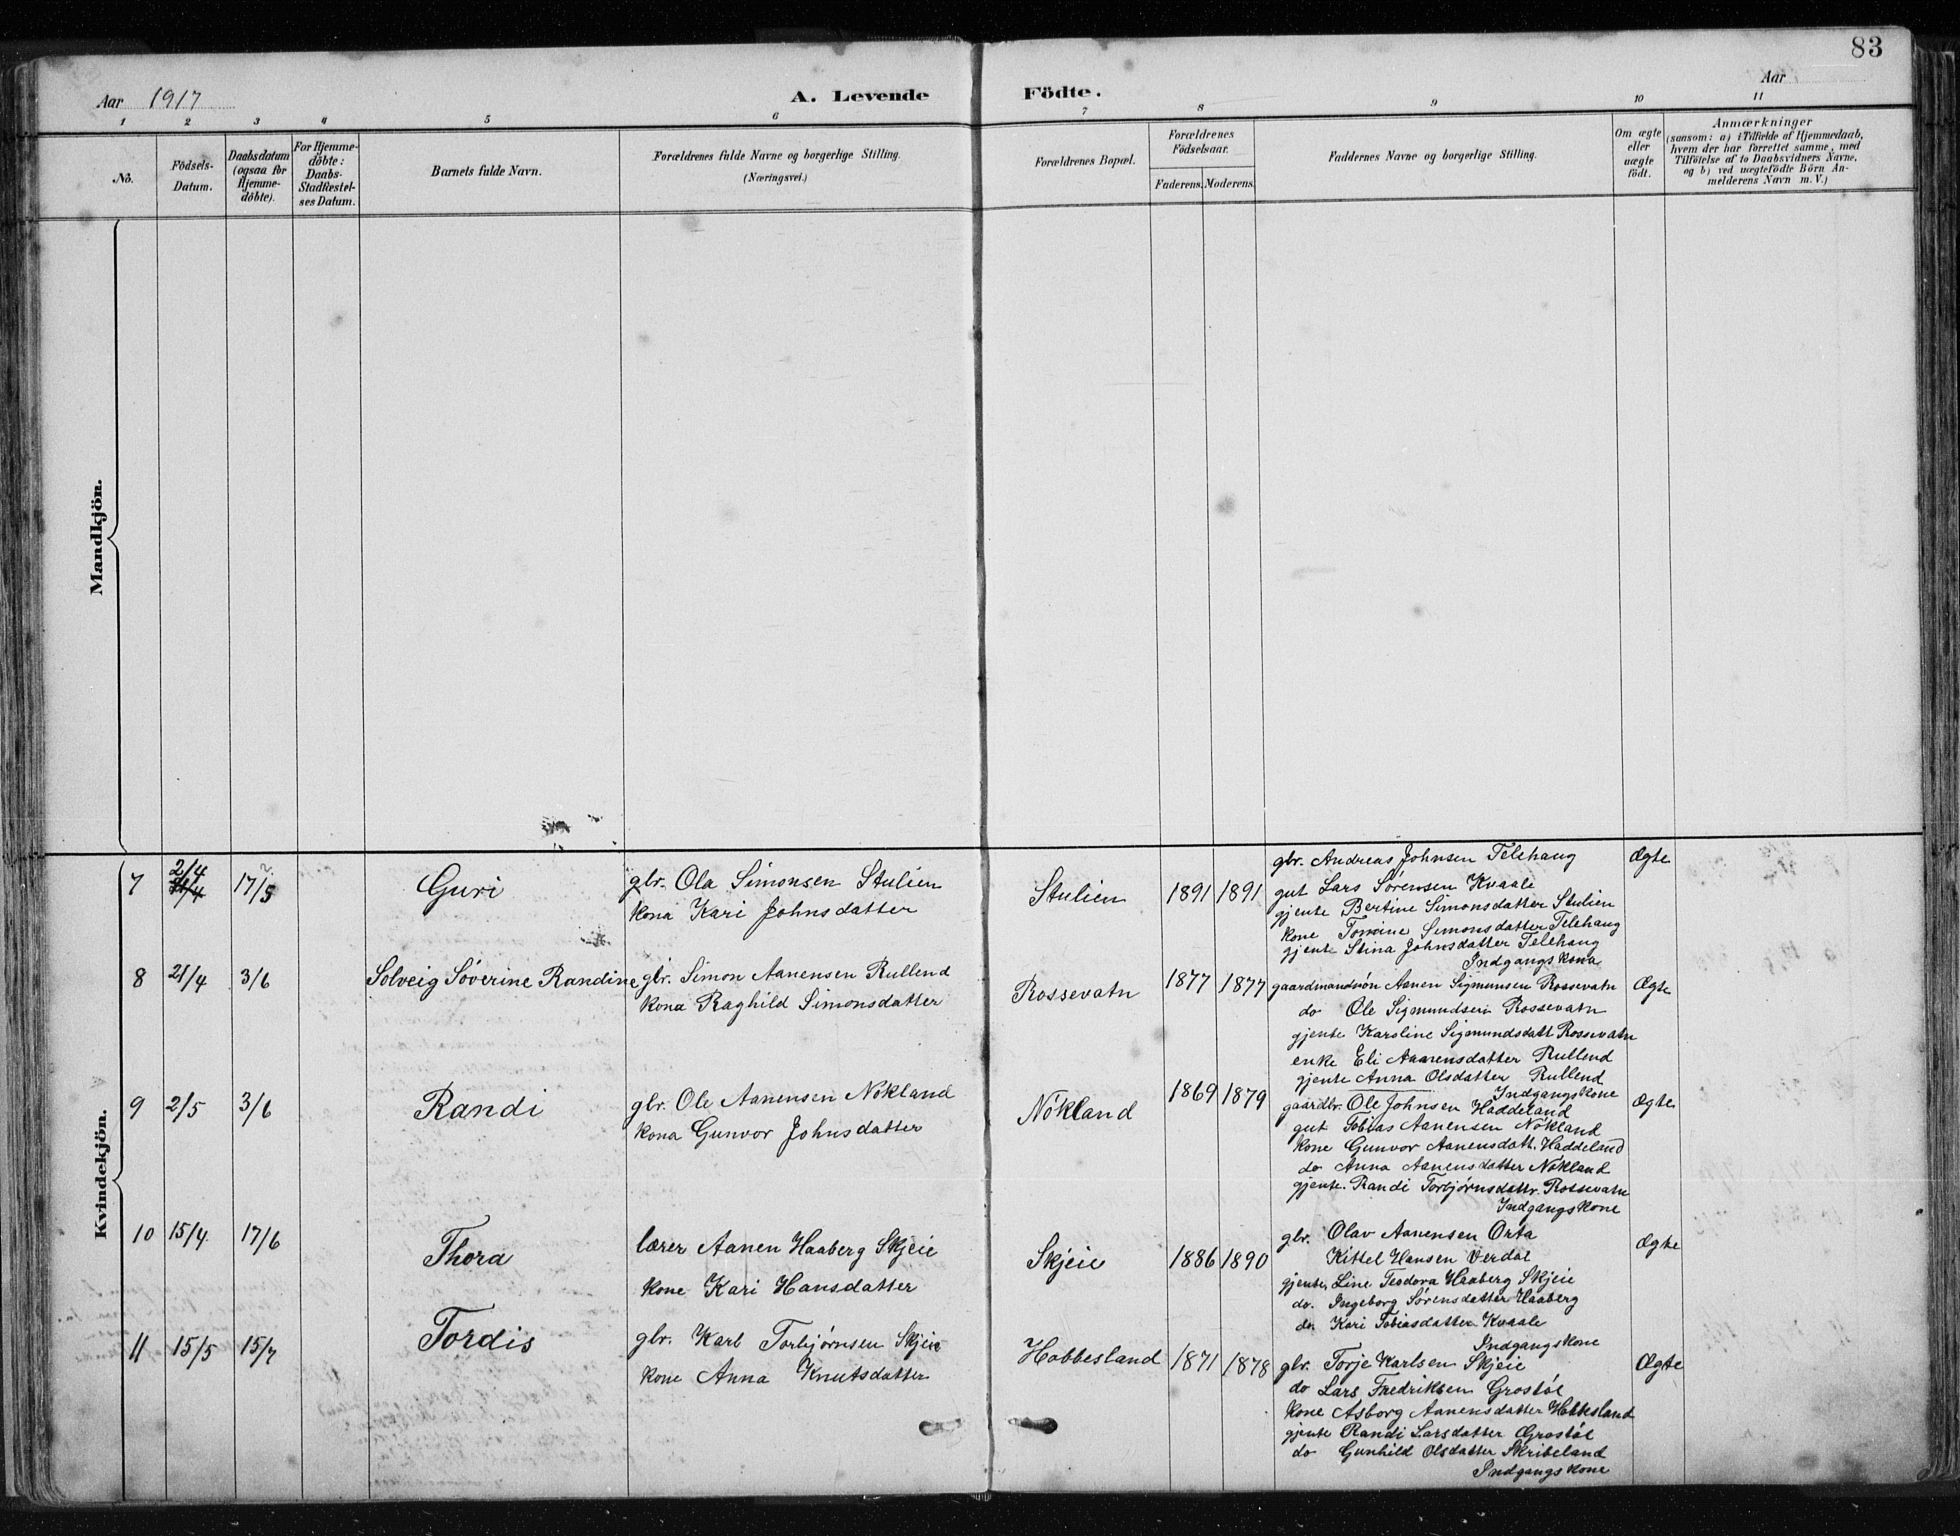 83
Aar 1917
A. Levende Födte.
Aar
1 2 3 4 5 6 7 8 9 10 11
No.
Födsels-
Datum.
Daabsdatum
(ogsaa for
Hjemme-
döbte).
For Hjemme-
döbte:
Daabs-
Stadfæstel-
ses Datum.
Barnets fulde Navn.
Forældrenes fulde Navne og borgerlige Stilling.
(Næringsvei.)
Forældrenes Bopæl.
Forældrenes
Födselsaar.
Faderens. Moderens.
Faddernes Navne og borgerlige Stilling.
Om ægte
eller
uægte
födt.
Anmærkninger
(saasom: a) i Tilfælde af Hjemmedaab,
hvem der har forrettet samme, med
Tilföielse af to Daabsvidners Navne,
og b) ved uægtefödte Börn An-
melderens Navn m. V.)
Mandkjön.
Kvindekjön.
7 2/4 17/5 Guri
glr. Ola Simonsen Stulien
kona Kari Johnsdatter
Stulien 1891 1891
gbr. Andreas Johnsen Telehaug
gut Lars Sørensen Kvaale
gjente Bertine Simonsdatter Stulien
kone Tomine Simonsdatter Telehaug
gjente Stina Johnsdatter Telehaug
Indgangskona
Ægte
8 21/4 3/6 Solveig Söverine Randine
gbr. Simon Aanensen Rullend
kona Raghild Simonsdatter
Rossevatn 1877 1877
gaardmandsön Aanen Sigmunsen Rossevatn
do Ole Sigmundsen Rossevatn
gjente Karoline Sigmundsdatt Rossevatn
enke Eli Aanensdatter Rullend
gjente Anna Olsdatter Rullend
Indgangskone
Ægte
9 2/5 3/6 Randi
glr. Ole Aanensen Nökland
kona Gunvor Johnsdatter
Nökland 1869 1879
gaardbr. Ole Johnsen Haddeland
gut Tobias Aanensen Nökland
kone Gunvor Aanensdatt. Haddeland
do Anna Aanensdatter Nökland
gjente. Randi Torbjørnsdattr. Rossevatn
Indgangskone
Ægte
10 15/4 17/6 Thora
lærer Aanen Haaberg Skjeie
kone Kari Hansdatter
Skjeie 1886 1890
glr. Olav Aanensen Orta
Kittel Hansen Verdal
gjente, Line Teodora Haaberg Skjeie
do. Ingeborg Sørensdatter Haaberg
do. Kari Tobiasdatter Kvaale
Indgangskone
Ægte
11 15/5 15/7 Tordis
glr. Karl Torbjørnsen Skjeie
kone Anna Knutsdatter
Hobbesland 1871 1878
glr. Torje Karlsen Skjeie
do Lars Fredriksen Grostøl
kone Asborg Aanensdatter Hobbesland
gjente Randi Larsdatter Grostøl
do Gunhild Olsdatter Skribeland
Indgangskone
Ægte